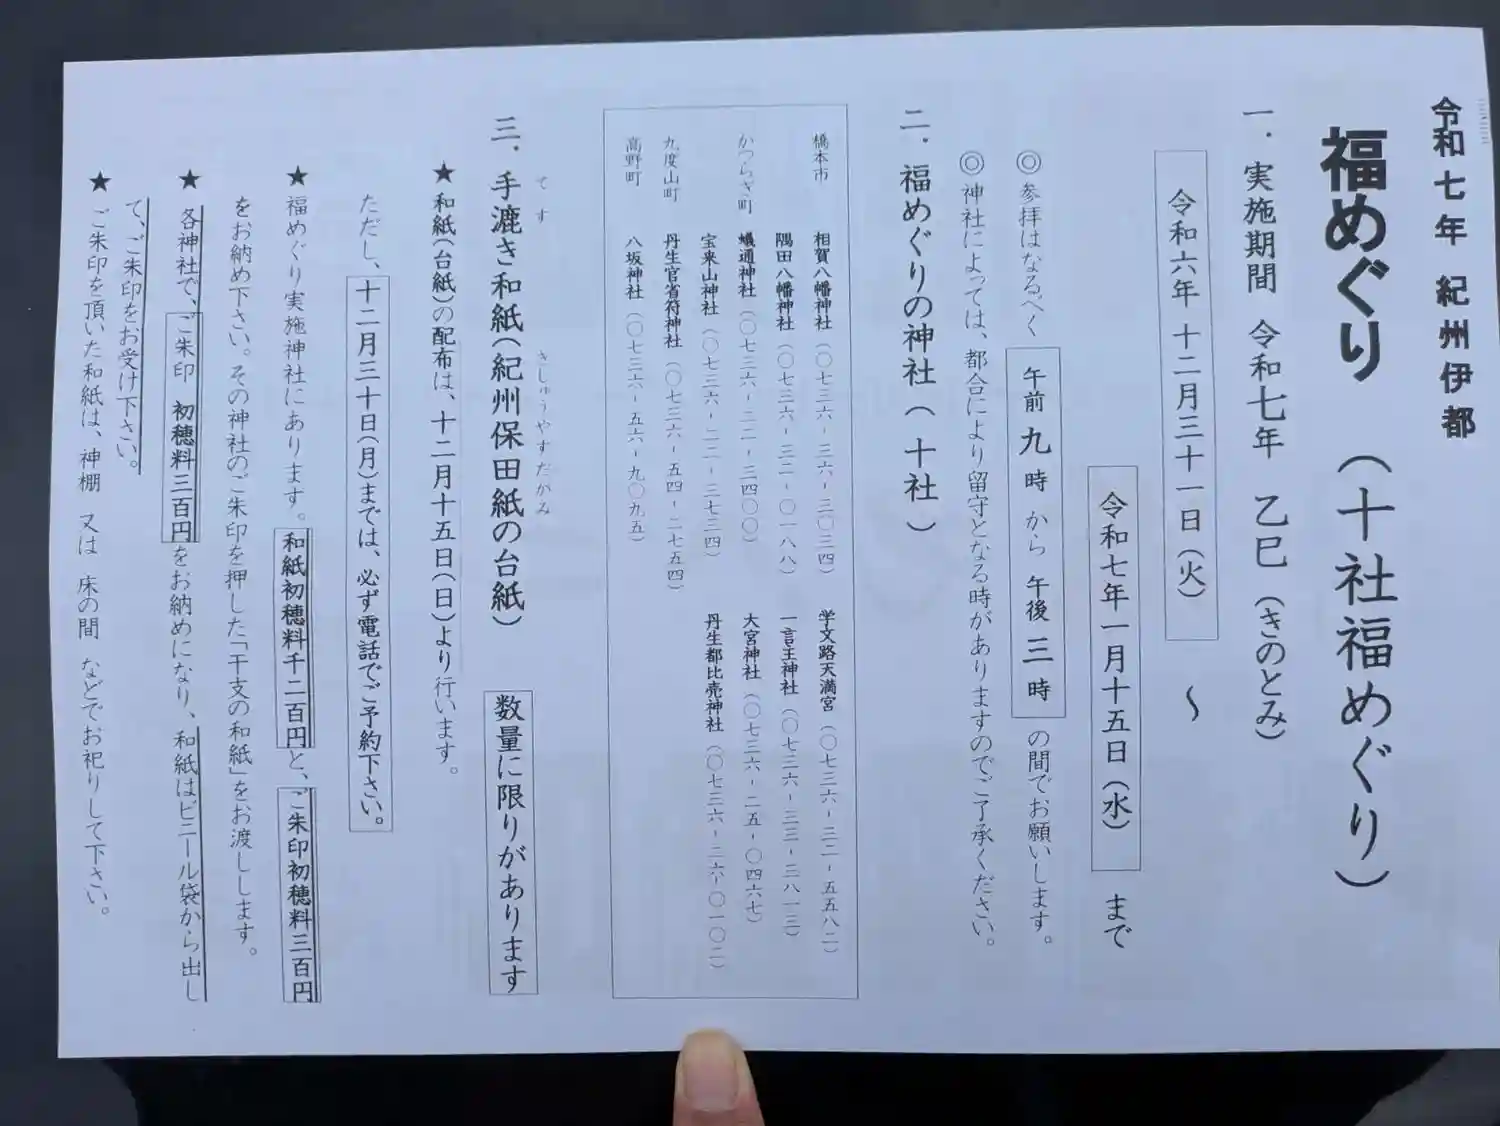 令和七年 紀州伊都
福めぐり（十社福めぐり）
一．実施期間 令和七年 乙巳（きのとみ）
令和六年 十二月三十一日（火） ～
令和七年一月十五日（水） まで
◎参拝はなるべく 午前 九 時 から 午後 三 時 の間でお願いします。
◎神社によっては、都合により留守となる時がありますのでご了承ください。
二．福めぐりの神社（十社）
橋本市 相賀八幡神社（〇七三六-三六-三〇三四） 学文路天満宮（〇七三六-三二-五五八二）
隅田八幡神社（〇七三六-三二-〇一八八） 一言主神社（〇七三六-三三-二八一三）
かつらぎ町 蟻通神社（〇七三六-二二-三四〇〇） 大宮神社（〇七三六-二五-〇四六七）
宝来山神社（〇七三六-二二-二七三四） 丹生都比売神社（〇七三六-二六-〇一〇二）
九度山町 丹生官省符神社（〇七三六-五四-二七五四）
高野町 八坂神社（〇七三六-五六-九〇九五）
三．手漉き和紙（紀州保田紙の台紙） 数量に限りがあります
てす きしゅうやすだがみ
★和紙（台紙）の配布は、十二月十五日（日）より行います。
ただし、十二月三十日（月）までは、必ず電話でご予約下さい。
★福めぐり実施神社にあります。和紙初穂料千二百円と、ご朱印初穂料三百円
をお納め下さい。その神社のご朱印を押した「干支の和紙」をお渡しします。
★各神社で、ご朱印 初穂料三百円をお納めになり、和紙はビニール袋から出し
て、ご朱印をお受け下さい。
★ご朱印を頂いた和紙は、神棚 又は 床の間 などでお祀りして下さい。